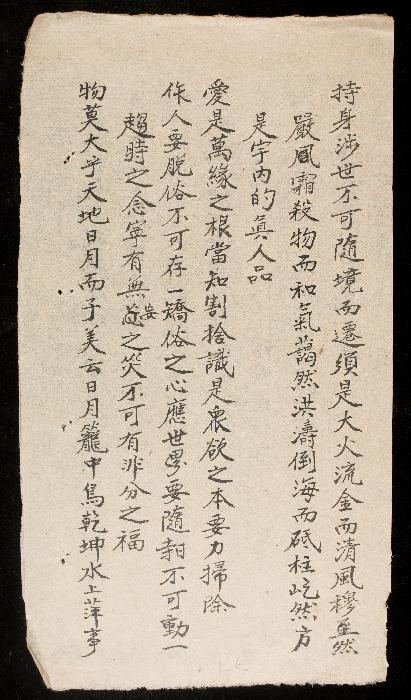 持身涉世不可隨境而遷須是大火流金而清風穆然
嚴風霜殺物而和氣藹然洪濤倒海而砥柱屹然方
是宇内的真人品
愛是萬緣之根當知割捨識是衆欲之本要力掃除
作人要脱俗不可存一矯俗之心應世要隨時不可動一
趨時之念寧有無妄之災不可有非分之福
物莫大乎天地日月而子美云日月籠中鳥乾坤水上萍事